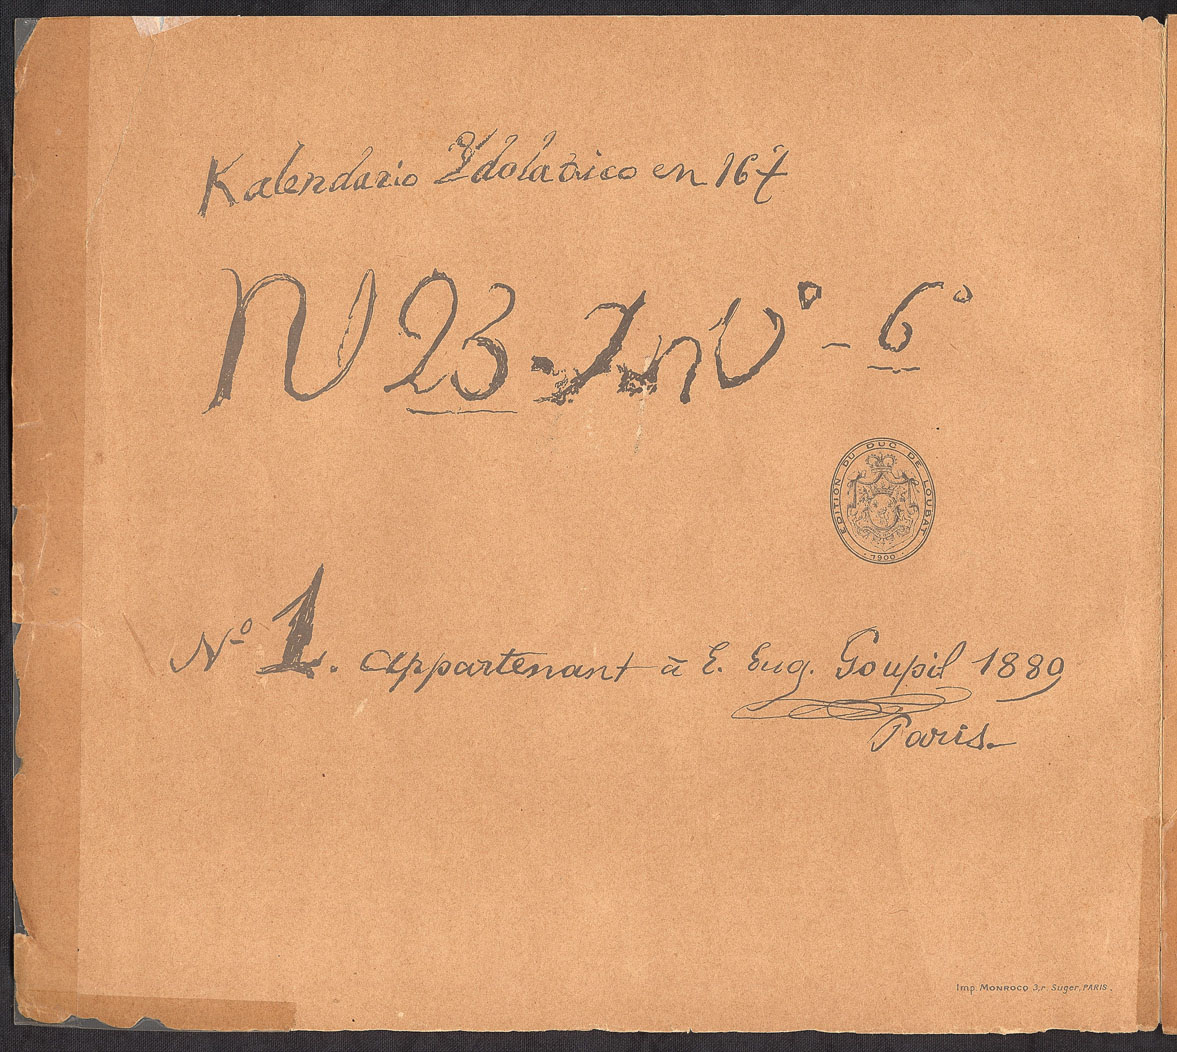 Kalendario Ydolatrico en 167
N 23 - Inv° - 6°
EDITION DU DUC DE LOUBAT
· 1900 ·
N° 1. appartenant à E. Eug. Goupil 1889
Paris.
Imp. MONROCQ 3, r. Suger, PARIS.